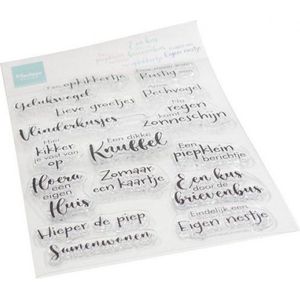 Een opkikkertje
Rustig
Geluksvogel
Pechvogel
Lieve groetjes
Na
regen
komt
Zonneschijn
Vlinderkusjes
Een dikke
Knuffel
Hier
kikker
je vast van
op
Een
piepklein
berichtje
Hoera
een
eigen
Huis
Zomaar
een kaartje
Een kus
door de
brievenbus
Hieper de piep
Eindelijk een
Eigen nestje
Samenwonen